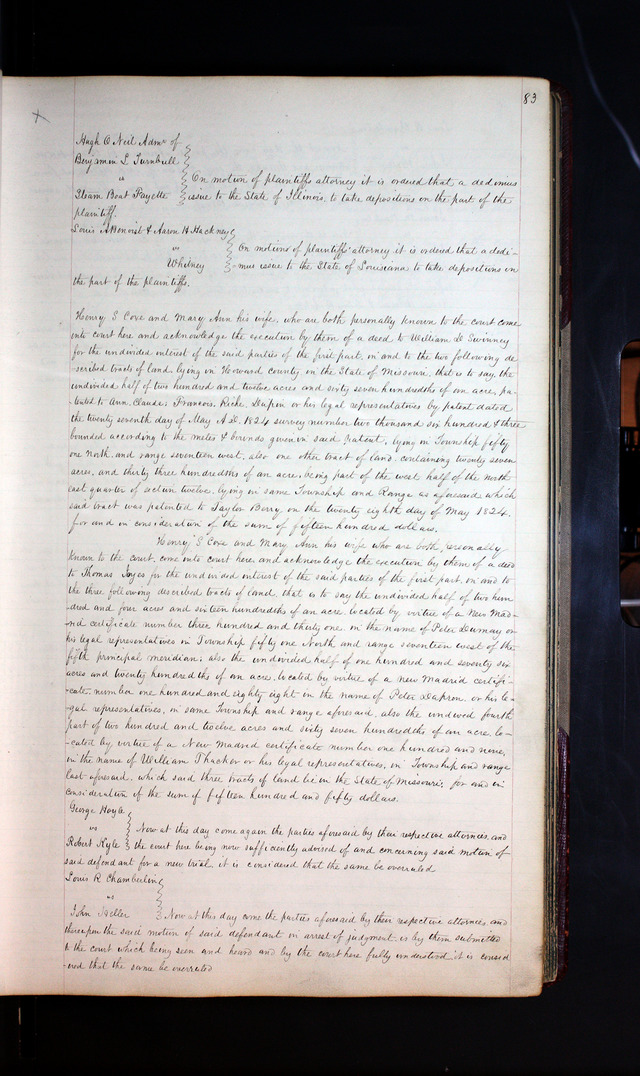 83
Hugh O Neil Admr of
Benjamin L Turnbull
vs
On motion of plaintiffs attorney it is ordered that a dedimus
Steam Boat Fayette issue to the State of Illinois, to take depositions on the part of the
plaintiff.
Louis A Benoist & Aaron H Hackney
vs
On motion of plaintiffs attorney it is ordered that a dedi-
Whitney -mus issue to the State of Louisiana to take depositions on
the part of the plaintiffs.
Henry S Coxe and Mary Ann his wife, who are both personally known to the court come
into court here and acknowledge the execution by them of a deed to William D Swinney
for the undivided interest of the said parties of the first part, in and to the two following de
-scribed tracts of land, lying in Howard county in the State of Missouri, that is to say, the
undivided half of two hundred and twelve acres and sixty seven hundredths of an acre, pa-
-tented to Ann. Claude. Francois. Riche. Dupin or his legal representatives by patent dated
the twenty seventh day of May A.D. 1824 survey number two thousand six hundred & three
bounded according to the metes & bounds given in said Patent, lying in Township fifty
one North and range seventeen west, also one other tract of land, containing twenty seven
acres, and thirty three hundredths of an acre being part of the west half of the north
east quarter of section twelve, lying in same Township and Range as aforesaid, which
said tract was patented to Taylor Berry, on the twenty eighth day of May 1824,
for and in consideration of the sum of fifteen hundred dollars.
Henry S Coxe and Mary Ann his wife who are both personally
known to the court, come into court here and acknowledge the execution by them of a deed
to Thomas for the undivided interest of the said parties of the first part, in and to
the three following described tracts of land, that is to say the undivided half of two hun
-dred and four acres and sixteen hundredths of an acre, located by virtue of a New Mad-
-rid certificate number three hundred and thirty one, in the name of Peter Dumay or
his legal representatives in Township fifty one North and range seventeen west of the
fifth principal meridian; also the undivided half of one hundred and seventy six
acres and twenty hundredths of an acre, located by virtue of a new Madrid certifi-
-cate, number one hundred and eighty eight in the name of Peter Dapron, or his le-
-gal representatives, in same Township and range aforesaid, also the undived fourth
part of two hundred and twelve acres and sixty seven hundredths of an acre, lo-
-cated by virtue of a New Madrid certificate number one hundred and nine,
in the name of William Thacker or his legal representatives, in Township and range
last aforesaid, which said three tracts of land lie in the State of Missouri; for and in
consideration of the sum of fifteen hundred and fifty dollars.
George Hoyle
vs
Now at this day come again the parties aforesaid by their respective attornies, and
Robert Kyle the court here being now sufficiently advised of and concerning said motion of
said defendant for a new trial, it is considered that the same be overruled
Louis R Chamberlin
vs
John Heller Now at this day come the parties aforesaid by their respective attornies, and
thereupon the said motion of said defendant in arrest of judgment is by them submitted
to the court which being seen and heard and by the court here fully understood it is consid
-ered that the same be overruled